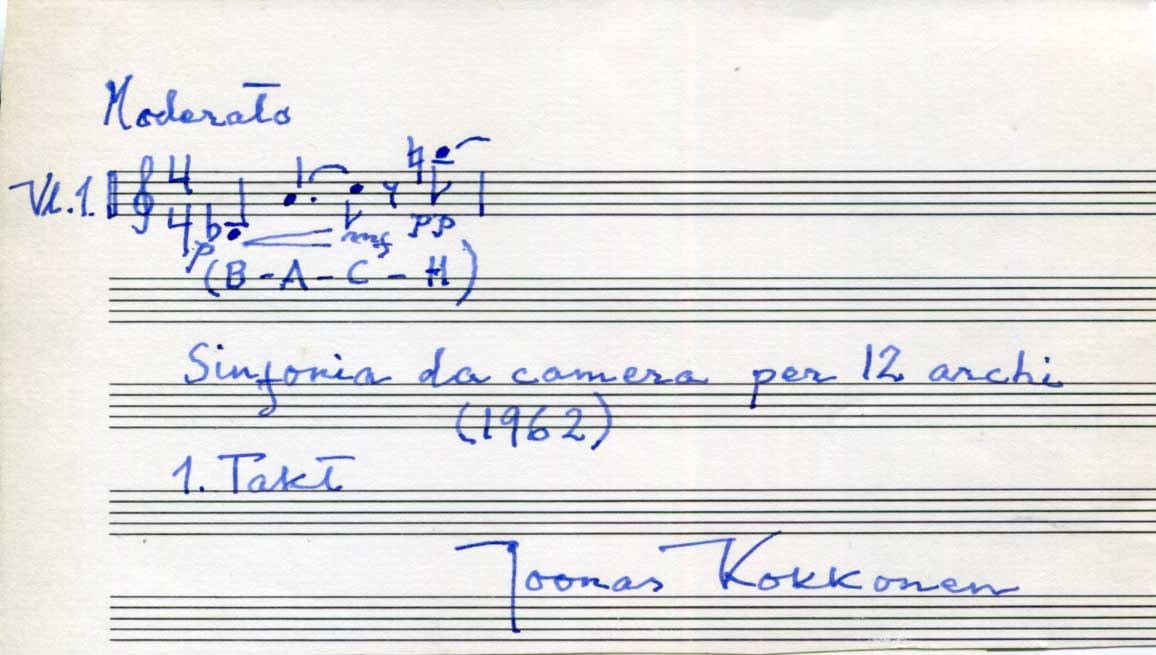 Moderato
Vl. 1. 4 4
p mf pp
(B - A - C - H)
Sinfonia da camera per 12 archi
(1962)
1. Takt
Joonas Kokkonen